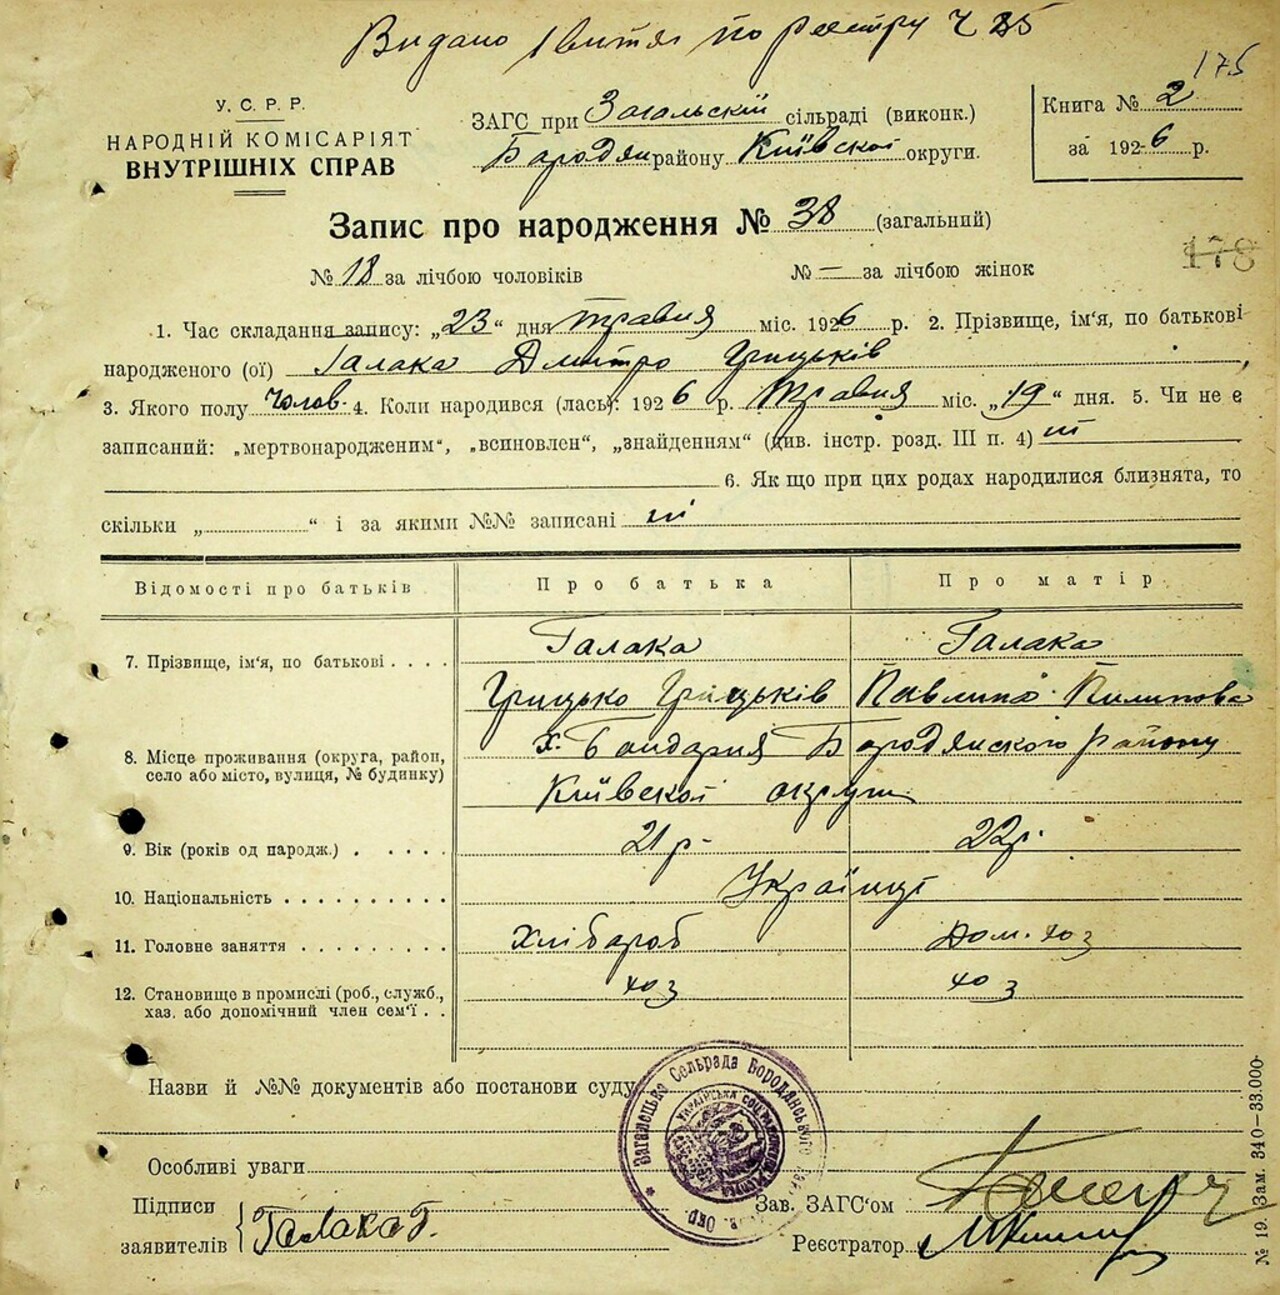 Видано 1 витяг по реєстру Ч 85
175
У. С. Р. Р.
НАРОДНІЙ КОМІСАРІЯТ
ВНУТРІШНІХ СПРАВ
ЗАГС при Загальскій сільраді (виконк.)
Бародян району Київскої округи.
Книга № 2
за 1926 р.
Запис про народження № 38 (загальний)
178
№ 18 за лічбою чоловіків № — за лічбою жінок
1. Час складання запису: „23“ дня травня міс. 1926 р. 2. Прізвище, ім'я, по батькові
народженого (ої) Галака Дмитро Грицьків
3. Якого полу Чолов. 4. Коли народився (лась): 1926 р. Травня міс. „19“ дня. 5. Чи не є
записаний: „мертвонародженим“, „всиновлен“, „знайденням“ (див. інстр. розд. III п. 4) ні
6. Як що при цих родах народилися близнята, то
скільки „ “ і за якими №№ записані ні
Відомості про батьків Про батька Про матір
7. Прізвище, ім'я, по батькові . . . . Галака Галака
Грицько Грицьків Павлина Пилипова
8. Місце проживання (округа, район, х. Бондарня Бародянского району
село або місто, вулиця, № будинку)
Київскої округи
9. Вік (років од народж.) . . . . . 21 р. 22 р.
10. Національність . . . . . . . . . . Українці
11. Головне заняття . . . . . . . . . Хлібароб Дом. хоз
12. Становище в промислі (роб., служб., хоз хоз
хаз. або допомічний член сем'ї . .
Назви й №№ документів або постанови суду
Загалецько Сельрада Бородянського
Особливі уваги
Підписи
заявителів Галака Г.
Зав. ЗАГС'ом
Реєстратор
№ 19. Зам. 340—33.000